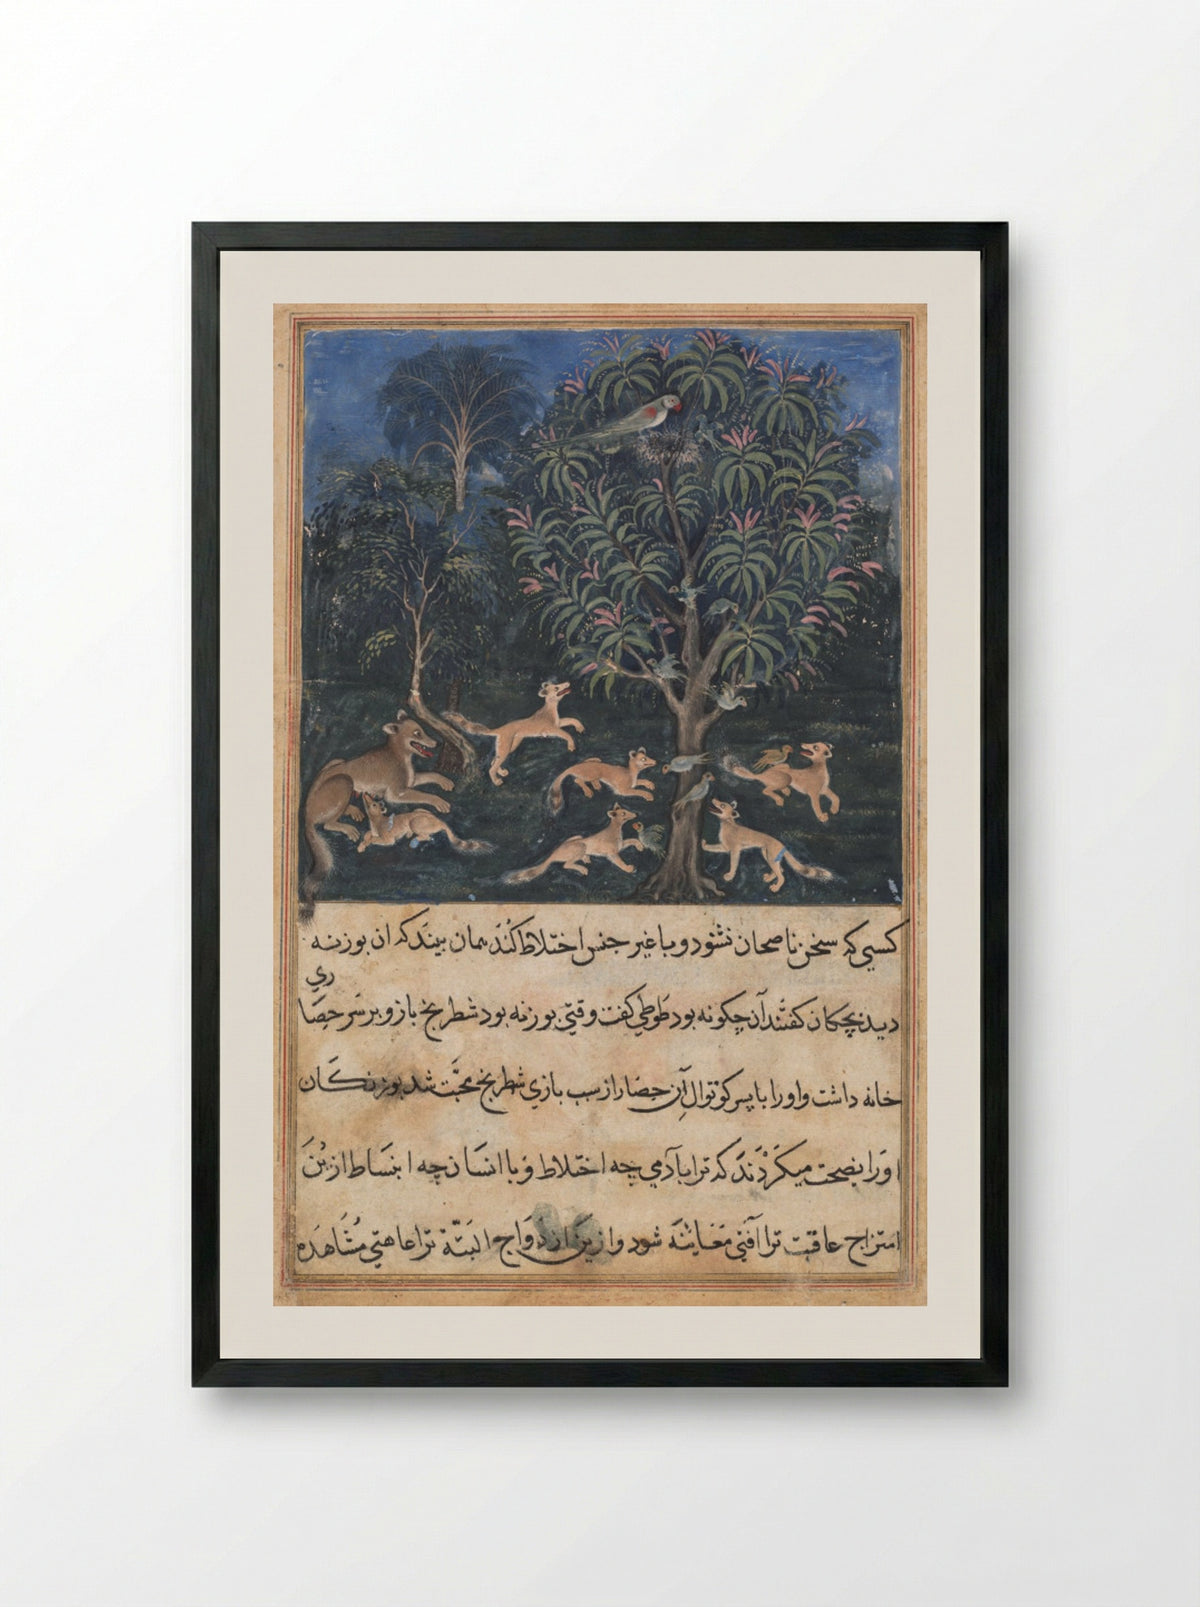 کسی که سخن ناصحان نشنود و با غیر جنس اختلاط کند همان بیند که ان بوزنه
دید بچکان گفتند آن چکونه بود طوطی گفت وقتی بوزنه بود شطرنج باز و بر سر حصاری
خانه داشت و او را با پسر کوتوال آن حصار از سبب بازی شطرنج محبت شد بوزنکان
او را نصیحت میکردند که ترا با آدمی چه اختلاط و با انسان چه انبساط ازین
امتزاج عاقبت ترا آفتی معاینه شود و ازین ازدواج البته ترا عاهتی مشاهده